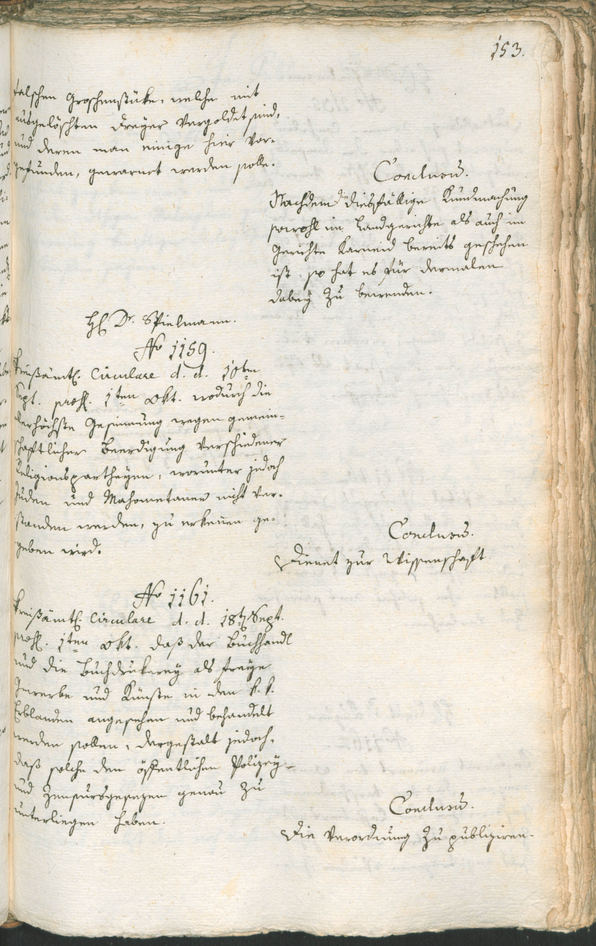 153.
falschen Groschenstücke, welche mit
ausgelöschten Dreyer vergoldet sind,
und deren man einige hier vor-
gefunden, gewarnet werden solle.
Conclusum.
Nachdem diesfällige Kundmachung
sowohl im Landgerichte als auch im
Gerichte Karneid bereits geschehen
ist, so hat es für dermalen
dabey zu bewenden.
H. Dr. Spielmann.
No 1159.
Kreisämtl. Circulare d. d. 10ten
Sept. pross. 1ten Okt. wodurch die
allerhöchste Gesinnung wegen gemein-
schaftlicher Beerdigung verschiedener
Religionspartheyen, worunter jedoch
Juden und Mahometaner nicht ver-
standen werden, zu erkennen ge-
geben wird.
Conclusum.
Dienet zur Wissenschaft
No 1161.
Kreisämtl. Circulare d. d. 18t Sept.
pross. 1ten Okt. daß der Buchhandl
und die Buchdrukerey als freye
Gewerbe und Künste in den k. k.
Erblanden angesehen und behandelt
werden sollen, dergestalt jedoch,
daß solche den öffentlichen Polizey-
und Zensursgesezen genau zu
unterliegen haben.
Conclusum.
Die Verordnung zu publiziren.